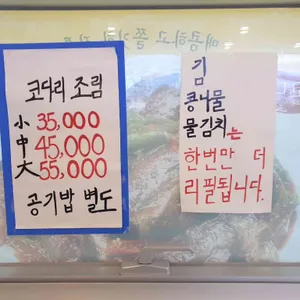 매콤하고 쫄깃한
코다리 조림
小 35,000
中 45,000
大 55,000
공기밥 별도
김
콩나물
물김치는
한번만 더
리필됩니다.